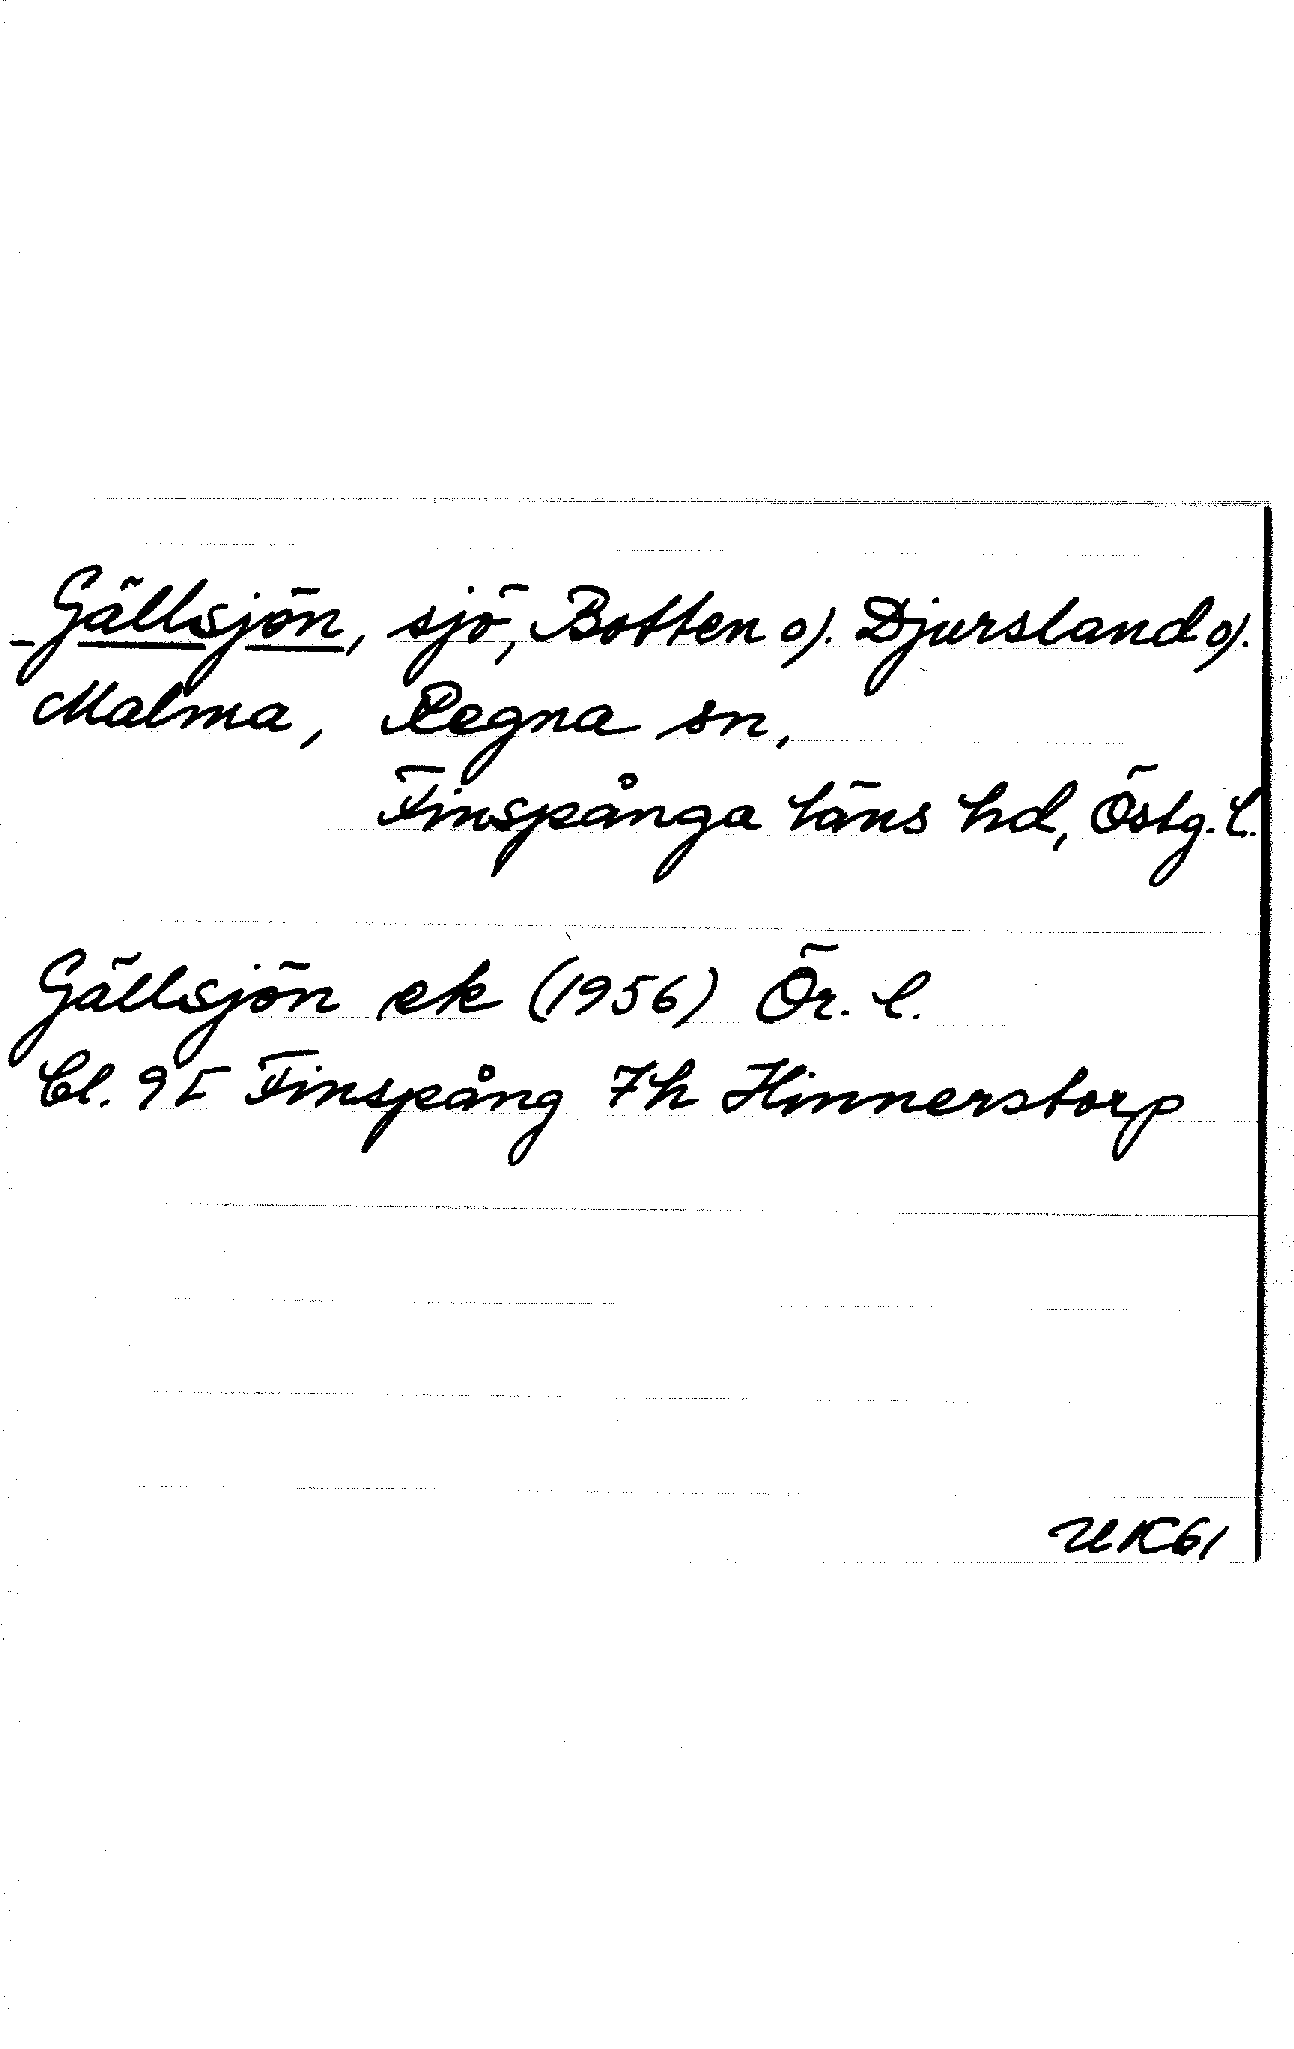 Gällsjön, sjö, Botten o). Djursland o).
Malma, Regna sn,
Finspånga läns hd, Östg. l.
Gällsjön ek (1956) Ör. l.
Bl. 9 F Finspång 7h Hinnerstorp
UK61